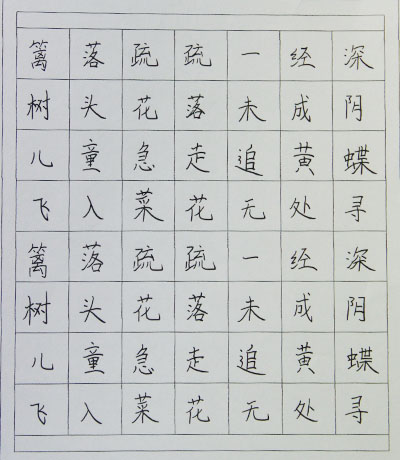 篱落疏疏一经深
树头花落未成阴
儿童急走追黄蝶
飞入菜花无处寻
篱落疏疏一经深
树头花落未成阴
儿童急走追黄蝶
飞入菜花无处寻